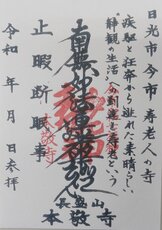 日光市今市寿老人の寺
疾駆と狂奔から逃れた素晴らしい
"静観の生活"
という
南無妙法蓮華経
止暇断眠
本敬寺
令和 年 月 日参拝
長盛山
本敬寺